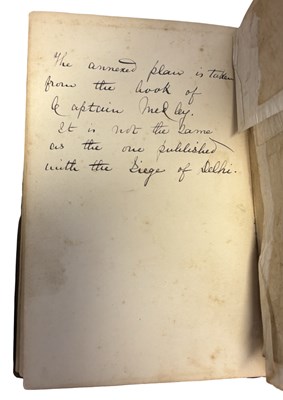 The annexed plan is taken
from the book of
Captain Medley.
It is not the same
as the one published
with the Siege of Delhi.